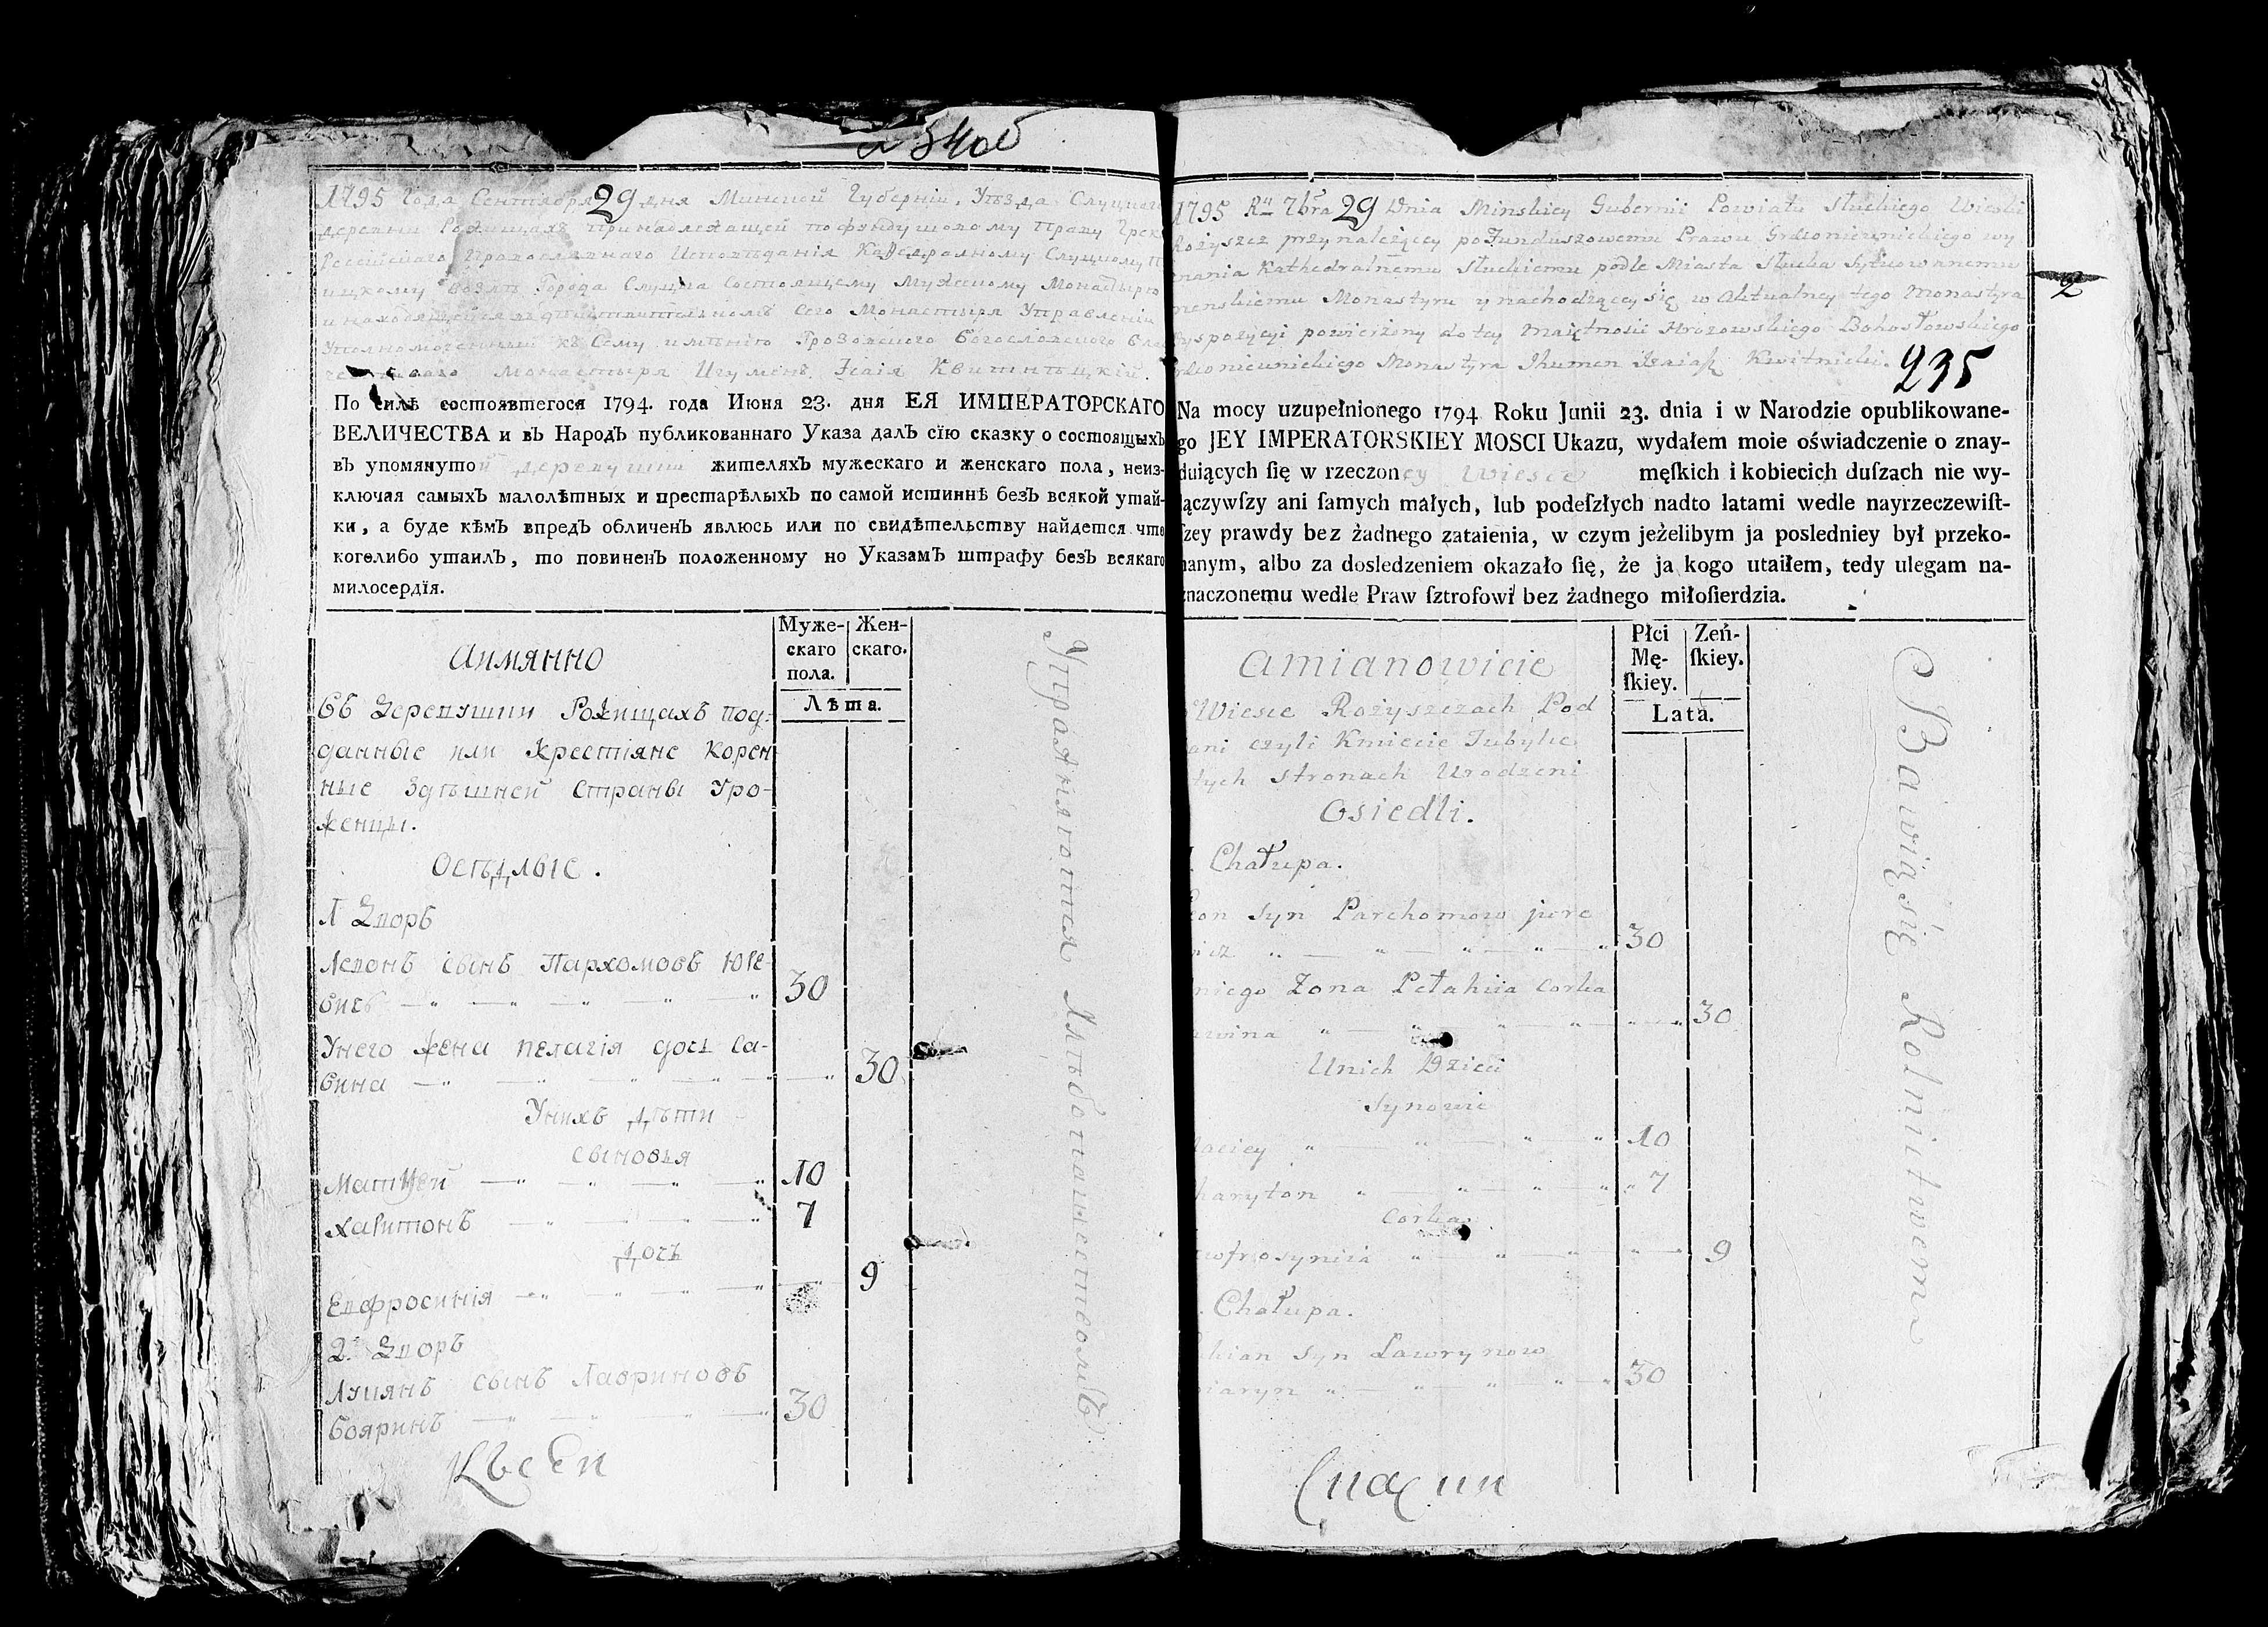 1795 Года Сентября 29 дня Минской Губернїи, Уѣзда Слуцкаго
деревни Рожищахъ принадлежащей по фундушовому Праву Греко
Россїйскаго Православнаго Исповѣданїя Кафедралному Слуцкому
ицкому возлѣ Города Слуцка Состоящему Мужескому Монастырю
и находящейся въ дѣйствительномъ Сего Монастыря Управленїи
Уполномоченный къ Сему имѣнїю Грозовского Богословского
Монастыря Игуменъ Ісаїя Квитницкїй.
По силѣ состоявтегося 1794. года Июня 23. дня ЕЯ ИМПЕРАТОРСКАГО
ВЕЛИЧЕСТВА и въ Народъ публикованнаго Указа далъ сїю сказку о состоящыхъ
въ упомянутой деревушни жителяхъ мужескаго и женскаго пола, неиз-
ключая самыхъ малолѣтныхъ и престарѣлыхъ по самой истиннѣ безъ всякой утай-
ки, а буде кѣмъ впредъ обличенъ явлюсь или по свидѣтельству найдется что
коголибо утаилъ, то повиненъ положенному но Указамъ штрафу безъ всякаго
милосердїя.
Аимянно
Муже-
скаго
пола.
Жен-
скаго.
Лѣта.
Въ Деревушни Рожищахъ под-
данные или Крестїяне Корен-
ные Здѣшней Страны Уро-
женцы.
Осѣдлые.
1 Дворъ
Леонъ сынъ Пархомовъ Юре-
вичъ 30
Унего жена Пелагїя дочь Са-
вина 30
Унихъ дѣти
сыновья
Матѳей 10
Харитонъ 7
Дочь
Евфросинїя 9
2. Дворъ
Лукянъ сынъ Лавриновъ
Бояринъ 30
Упражняются Хлѣбопашествомъ
235
2
1795 Ru 7bra 29 Dnia Minskiey Gubernii Powiatu Słuckiego Wioski
Rożyszcz przynależącey po Funduszowemu Prawu Grekonieunickiego wy
znania Kathedralnemu Słuckiemu podle Miasta Słucka Sytuowanemu
menskiemu Monastyru y nachodzącey się w aktualney tego Monastyra
dyspozycyi powierzony do tey maiętnosci Hrozowskiego Bohosłowskiego
Grekonieunickiego Monastyra Ihumen Izaiasz Kwitnicki.
Na mocy uzupełnionego 1794 Roku Junii 23. dnia i w Narodzie opublikowane-
go JEY IMPERATORSKIEY MOSCI Ukazu, wydałem moie oświadczenie o znay-
duiących ſię w rzeczoney Wiesce męſkich i kobiecich duſzach nie wy-
łączywſzy ani ſamych małych, lub podeſzłych nadto latami wedle nayrzeczewiſt-
ſzey prawdy bez żadnego zataienia, w czym jeżelibym ja posledniey był przeko-
nanym, albo za dosledzeniem okazało ſię, że ja kogo utaiłem, tedy ulegam na-
znaczonemu wedle Praw ſztrofowi bez żadnego miłoſierdzia.
Amianowicie
Płci
Mę-
ſkiey.
Żeń-
ſkiey.
Lata.
Wiesce Rożyszczach Pod
ani czyli Kmiecie Tubylce
tych stronach Urodzeni
Osiedli.
1. Chałupa.
Leon syn Parchomow Jure
wicz 30
niego Żona Pełahiia Corka
awina 30
Unich Dzieci
Synowie
Maciey 10
Charyton 7
Corka
Ewfrosyniia 9
Chałupa.
kian Syn Lawrynow
iaryn 30
Bawią się Rolnictwem